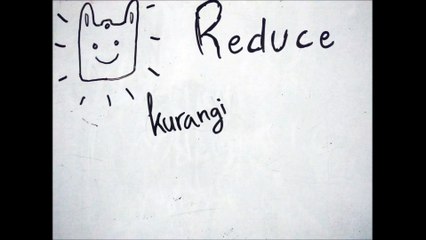 Reduce
kurangi